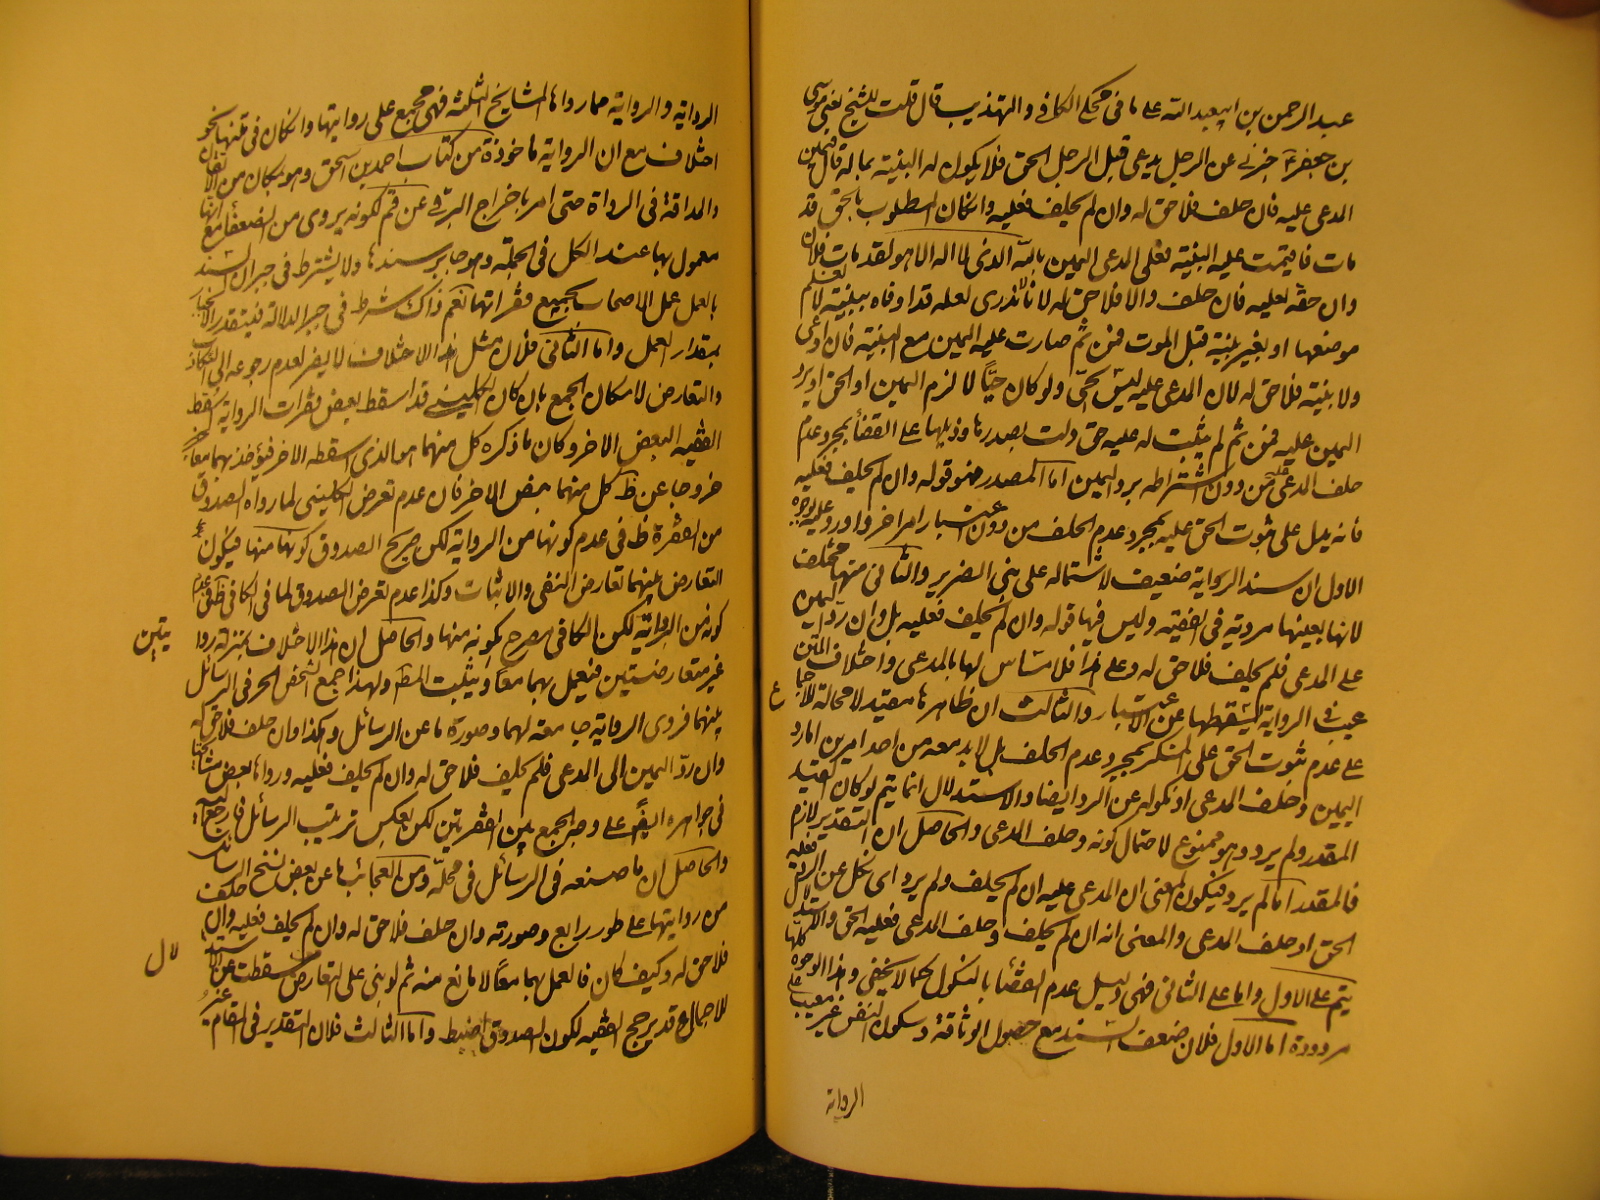 عبد الرحمن بن ابيعبد الله على ما فى محكى الكافى والتهذيب قال قلت للشيخ يعنى موسى
بن جعفر ع خبرنى عن الرجل يدعى قبل الرجل الحق فلا يكون له البينة بما له قال فيمين
المدعى عليه فان حلف فلا حق له وان لم يحلف فعليه وان كان المطلوب بالحق قد
مات فاقيمت عليه البينة فعلى المدعى اليمين بالله الذى لا اله الا هو لقد مات فلان
وان حقه لعليه فان حلف والا فلا حق له لانا لا ندرى لعله قد اوفاه ببينة لا نعلم
موضعها او بغير بينة قبل الموت فمن ثم صارت عليه اليمين مع البينة فان ادعى
ولا بينة فلا حق له لان المدعى عليه ليس بحى ولو كان حيا لالزم اليمين او الحق او يرد
اليمين عليه فمن ثم لم يثبت له عليه حق دلت بصدرها وذيلها على القضاء بمجرد عدم
حلف المدعى عليه من دون اشتراطه برد اليمين اما الصدر فهو قوله وان لم يحلف فعليه
فانه يدل على ثبوت الحق عليه بمجرد عدم الحلف من دون اعتبار امر اخر واورد عليه بوجوه
الاول ان سند الرواية ضعيف لاشتماله على بنى الضرير والثانى منها مختلف
لانها بعينها مروية فى الفقيه وليس فيها قوله وان لم يحلف فعليه بل وان رد اليمين
على المدعى فلم يحلف فلا حق له وعلى هذا فلا مساس لها بالمدعى واختلاف المتن
عيب فى الرواية يسقطها عن الاعتبار والثالث ان ظاهرها مقيد لا محالة للاجماع
على عدم ثبوت الحق على المنكر بمجرد عدم الحلف بل لا بد معه من احد امرين اما رد
اليمين وحلف المدعى او نكوله عن الرد ايضا والاستدلال انما يتم لو كان القيد
المقدر ولم يرد وهو ممنوع لاحتمال كونه وحلف المدعى والحاصل ان التقدير لازم
فالمقدر اما لم يرد فيكون المعنى ان المدعى عليه ان لم يحلف ولم يرد اى نكل عن الرد فعليه
الحق او حلف المدعى والمعنى انه ان لم يحلف وحلف المدعى فعليه الحق والاستدلال
يتم على الاول واما على الثانى فهى دليل عدم القضاء بالنكول كما لا يخفى وهذا الوجوه كلها
مردودة اما الاول فلان ضعف السند مع حصول الوثاقة وسكون النفس غير معيب على
الرواية
الرواية والرواية مما رواها المشايخ الثلثة فهى مجمع على روايتها وان كان فى متنها نحو
اختلاف مع ان الرواية ماخوذة من كتاب احمد بن اسحق وهو بمكان من الاتقان
والمداقة فى الرواة حتى امر باخراج البرقى عن قم لكونه يروى من الضعفاء مع انها
معمول بها عند الكل فى الجملة وهو جابر سندها ولا يشترط فى جبران السند
بالعمل عمل الاصحاب بجميع فقراتها نعم ذاك شرط فى جبر الدلالة فيتقدر الانجبار
بمقدار العمل واما الثانى فلان مثل هذا الاختلاف لا يضر لعدم رجوعه الى التكاذب
والتعارض لامكان الجمع بان كان الكلينى قد اسقط بعض فقرات الرواية واسقط
الفقيه البعض الاخر وكان ما ذكره كل منهما هو الذى اسقطه الاخر فيؤخذ بهما معا
خروجا عن ظ كل منهما بنص الاخر فان عدم تعرض الكلينى لما رواه الصدوق
من الفقرة ظ فى عدم كونها من الرواية لكن صريح الصدوق كونها منها فيكون
التعارض بينهما تعارض النفى والاثبات وكذا عدم تعرض الصدوق لما فى الكافى ظ فى عدم
كونه من الرواية لكن الكافى مصرح بكونه منها والحاصل ان هذا الاختلاف بمنزلة روا
يتين
غير متعارضتين فيعمل بهما معا ويثبت المط ولهذا جمع الشخص الحر فى الرسائل
بينهما فروى الرواية جامعة لهما وصورة ما عن الرسائل وهكذا وان حلف فلا حق له
وان رد اليمين الى المدعى فلم يحلف فلا حق له وان لم يحلف فعليه ورواها بعض مشايخنا
فى جواهره ايضا على وجه الجمع بين الفقرتين لكن بعكس ترتيب الرسائل فارجع اليه
والحاصل ان ما صنعه فى الرسائل فى محله ومن العجائب ما عن بعض نسخ الرسائل
من روايتها على طور رابع وصورته وان حلف فلا حق له وان لم يحلف فعليه وان حلف
فلا حق له وكيف كان فالعمل بهما معا لا مانع منه ثم لو بنى على التعارض سقطت عن الاستد
لال
للاجمال وقد يرجح الفقيه لكون الصدوق اضبط واما الثالث فلان التقدير فى المقام غير